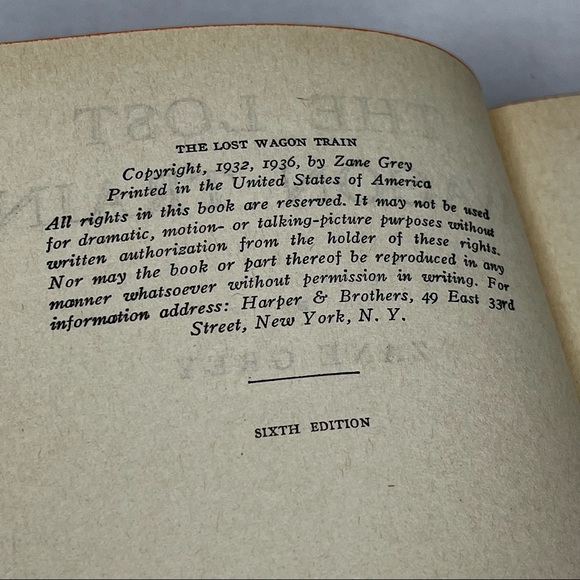 THE LOST WAGON TRAIN
Copyright, 1932, 1936, by Zane Grey
Printed in the United States of America
All rights in this book are reserved. It may not be used
for dramatic, motion- or talking-picture purposes without
written authorization from the holder of these rights.
Nor may the book or part thereof be reproduced in any
manner whatsoever without permission in writing. For
information address: Harper & Brothers, 49 East 33rd
Street, New York, N. Y.
SIXTH EDITION